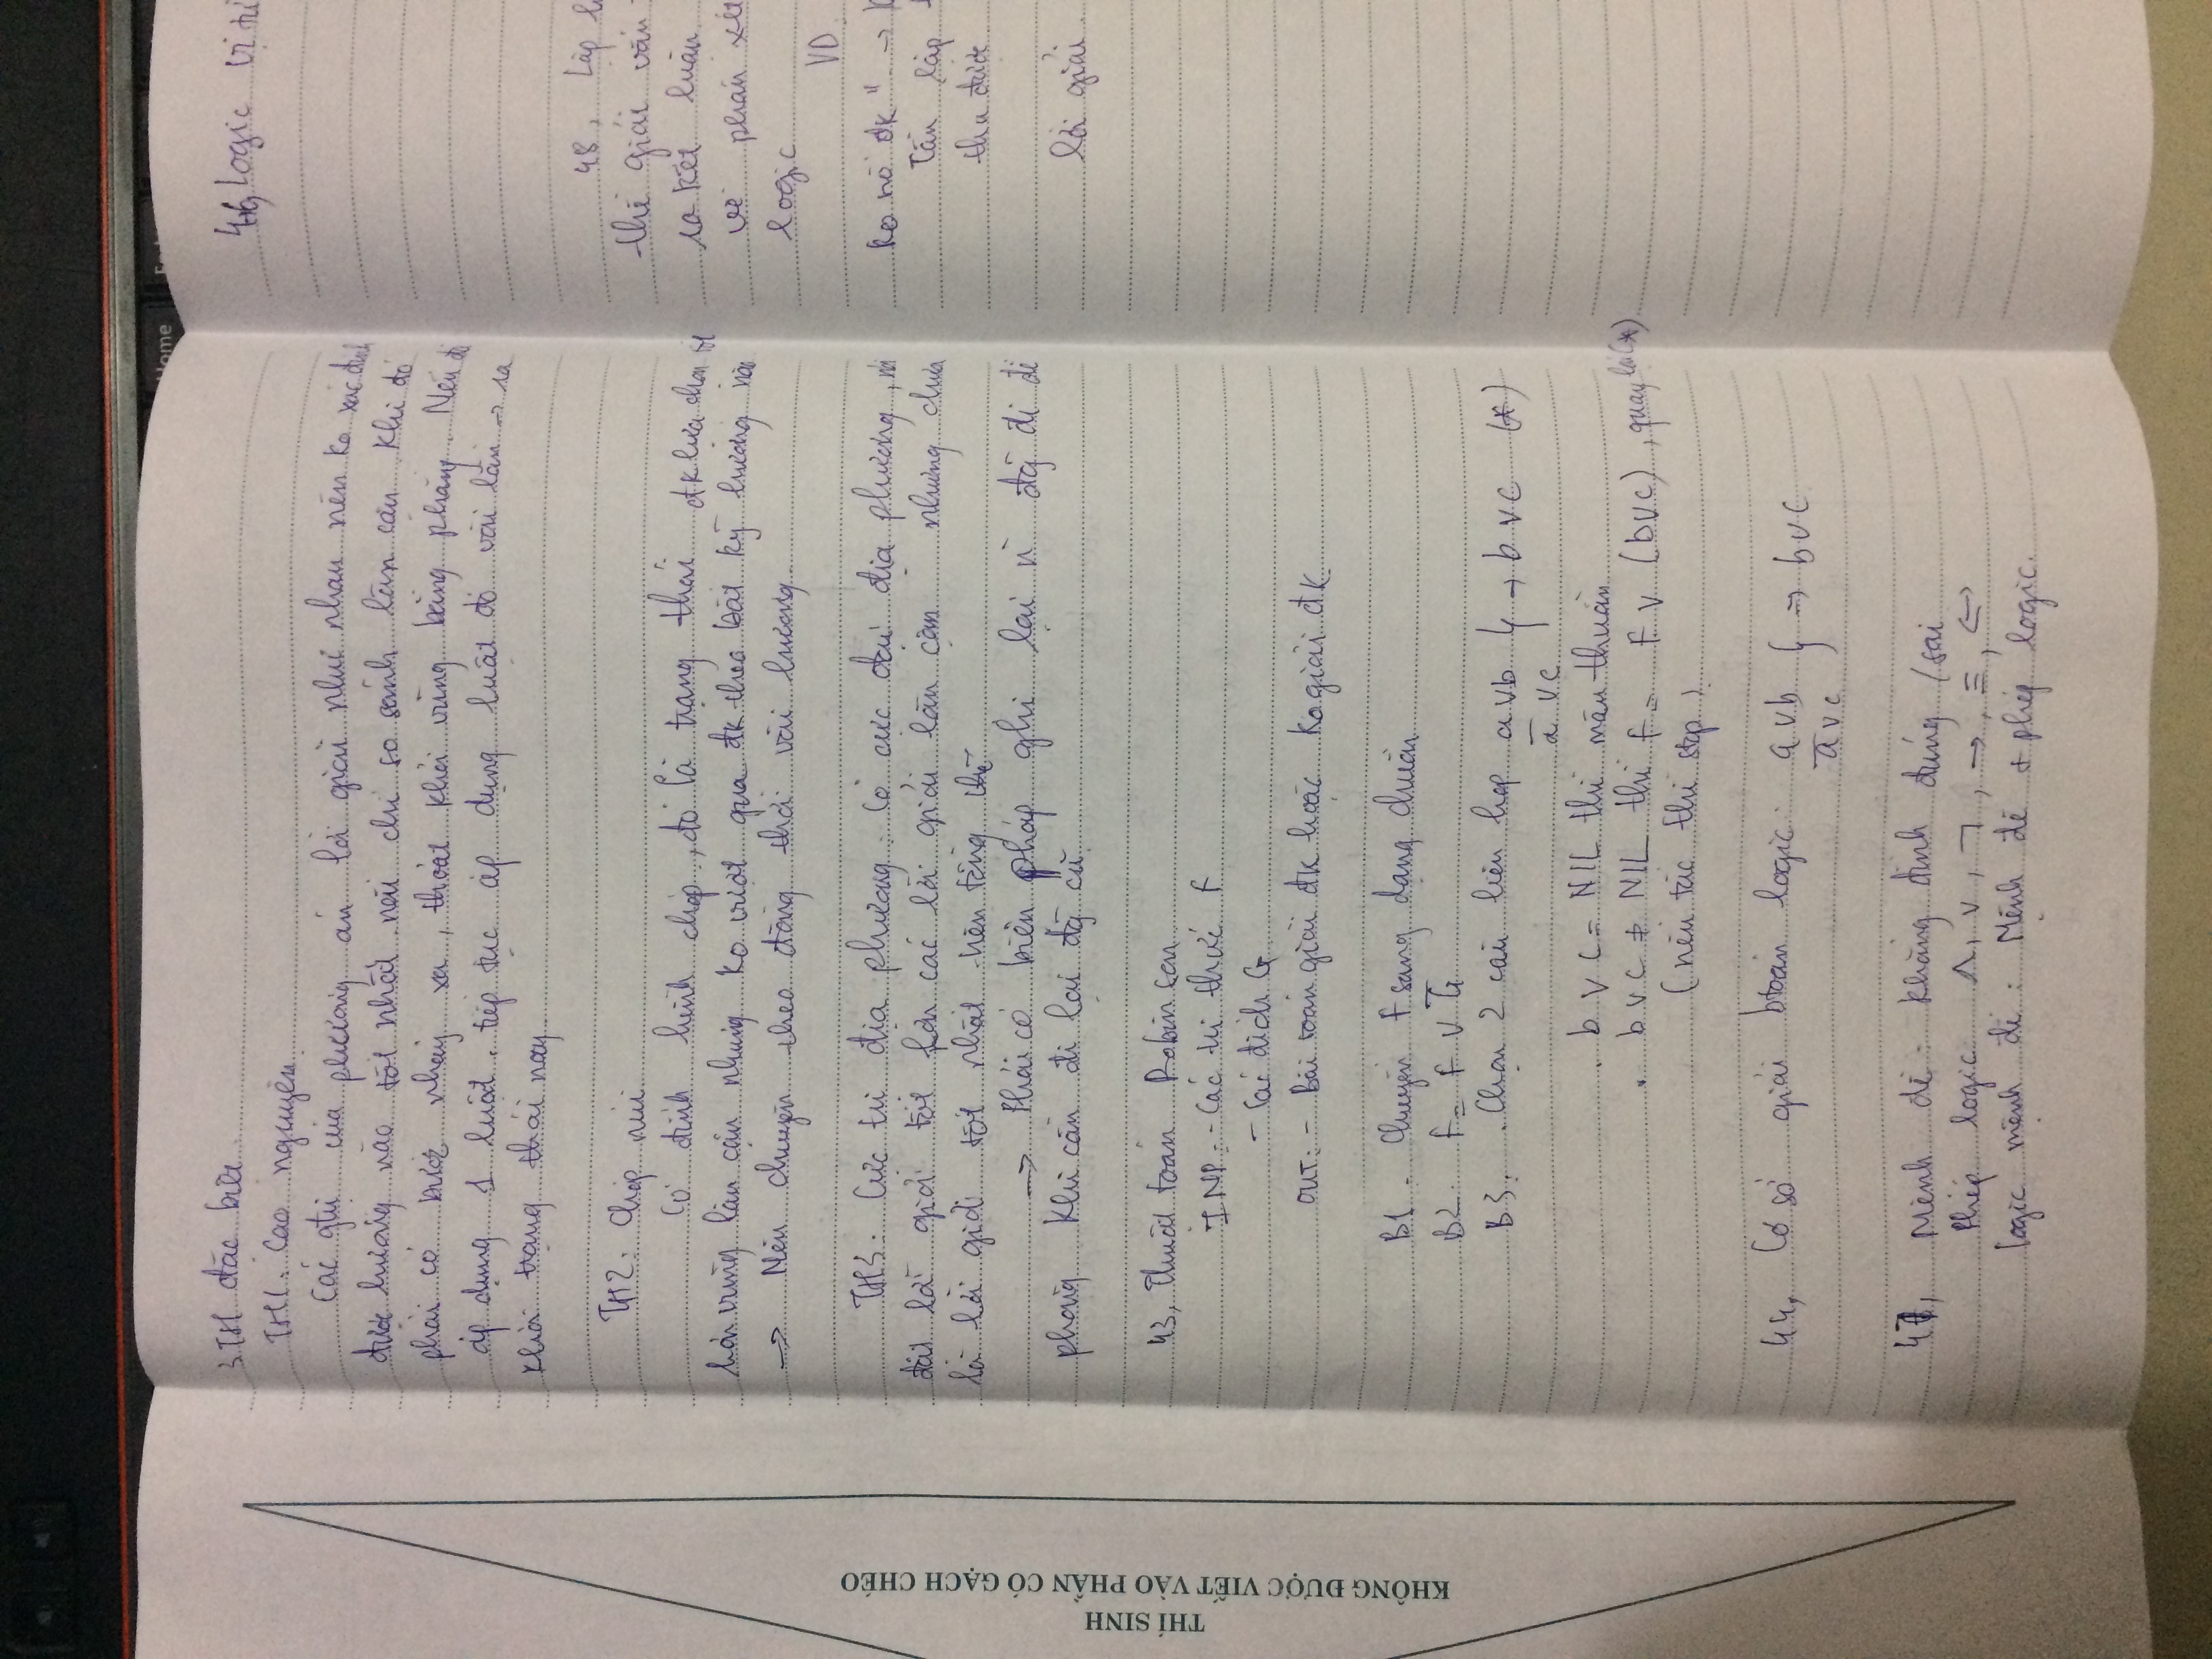 Home
THÍ SINH
KHÔNG ĐƯỢC VIẾT VÀO PHẦN CÓ GẠCH CHÉO
3 TH đặc biệt
TH1: Cao nguyên
Các gtrị của phương án lời giải như nhau nên ko xác định
được hướng nào tốt nhất nếu chỉ so sánh lân cận. Khi đó
phải có bước nhảy xa, thoát khỏi vùng bằng phẳng. Nếu đã
áp dụng 1 luật, tiếp tục áp dụng luật đó vài lần → ra
khỏi trạng thái nay
TH2: Chóp núi
Có đỉnh hình chóp, đó là trạng thái đk lựa chọn tốt
hơn vùng lân cận nhưng ko vượt qua đk theo bất kỳ hướng nào
→ Nên chuyển theo đồng thời vài hướng.
TH3: Cực trị địa phương: Có cực đại địa phương,
đạt lời giải tốt hơn các lời giải lân cận nhưng chưa
là lời giải tốt nhất trên tổng thể
→ Phải có biện pháp ghi lại đg đi để
phòng khi cần đi lại đg cũ.
43, Thuật toán Robinson
INP: - Các tri thức F
- Các đích G
OUT: - Bài toán giải đk hoặc ko giải đk.
B1. Chuyển F sang dạng chuẩn
B2. F = F ∨ G̅
B3. . Chọn 2 câu liên hợp a ∨ b } → b ∨ c (*)
a̅ ∨ c
. b ∨ c = NIL thì mâu thuẫn
. b ∨ c ≠ NIL thì F = F ∨ (b∨c), quay lại (*)
(nếu tắc thì stop)
44, Cơ sở giải btoán logic: a ∨ b } → b ∨ c
a̅ ∨ c
47, Mệnh đề: khẳng định đúng / sai
Phép logic ∧, ∨, ¬, →, ≡, ⇔
logic mệnh đề: Mệnh đề + phép logic.
46, Logic vị từ
48, Lập
thể giải vấn
ra kết luận
về phán xét
logic
VD.
ko nó đk" →
Tấn lập
thu được
lời giải.